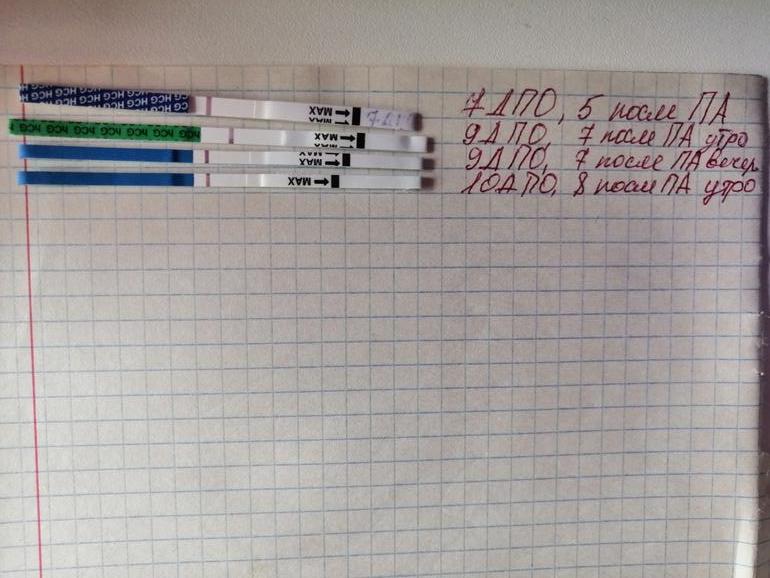 HCG HCG HCG HCG HCG MAX 7 ДПО, 5 после ПА
HCG HCG HCG HCG HCG HCG HCG MAX 9 ДПО, 7 после ПА утро
MAX 9 ДПО, 7 после ПА вечер
MAX 10 ДПО, 8 после ПА утро